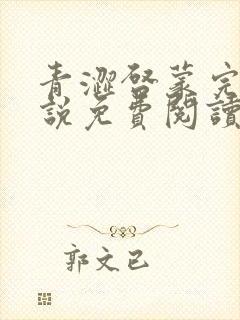 青澀啓蒙完
說免費閱讀
郭文已